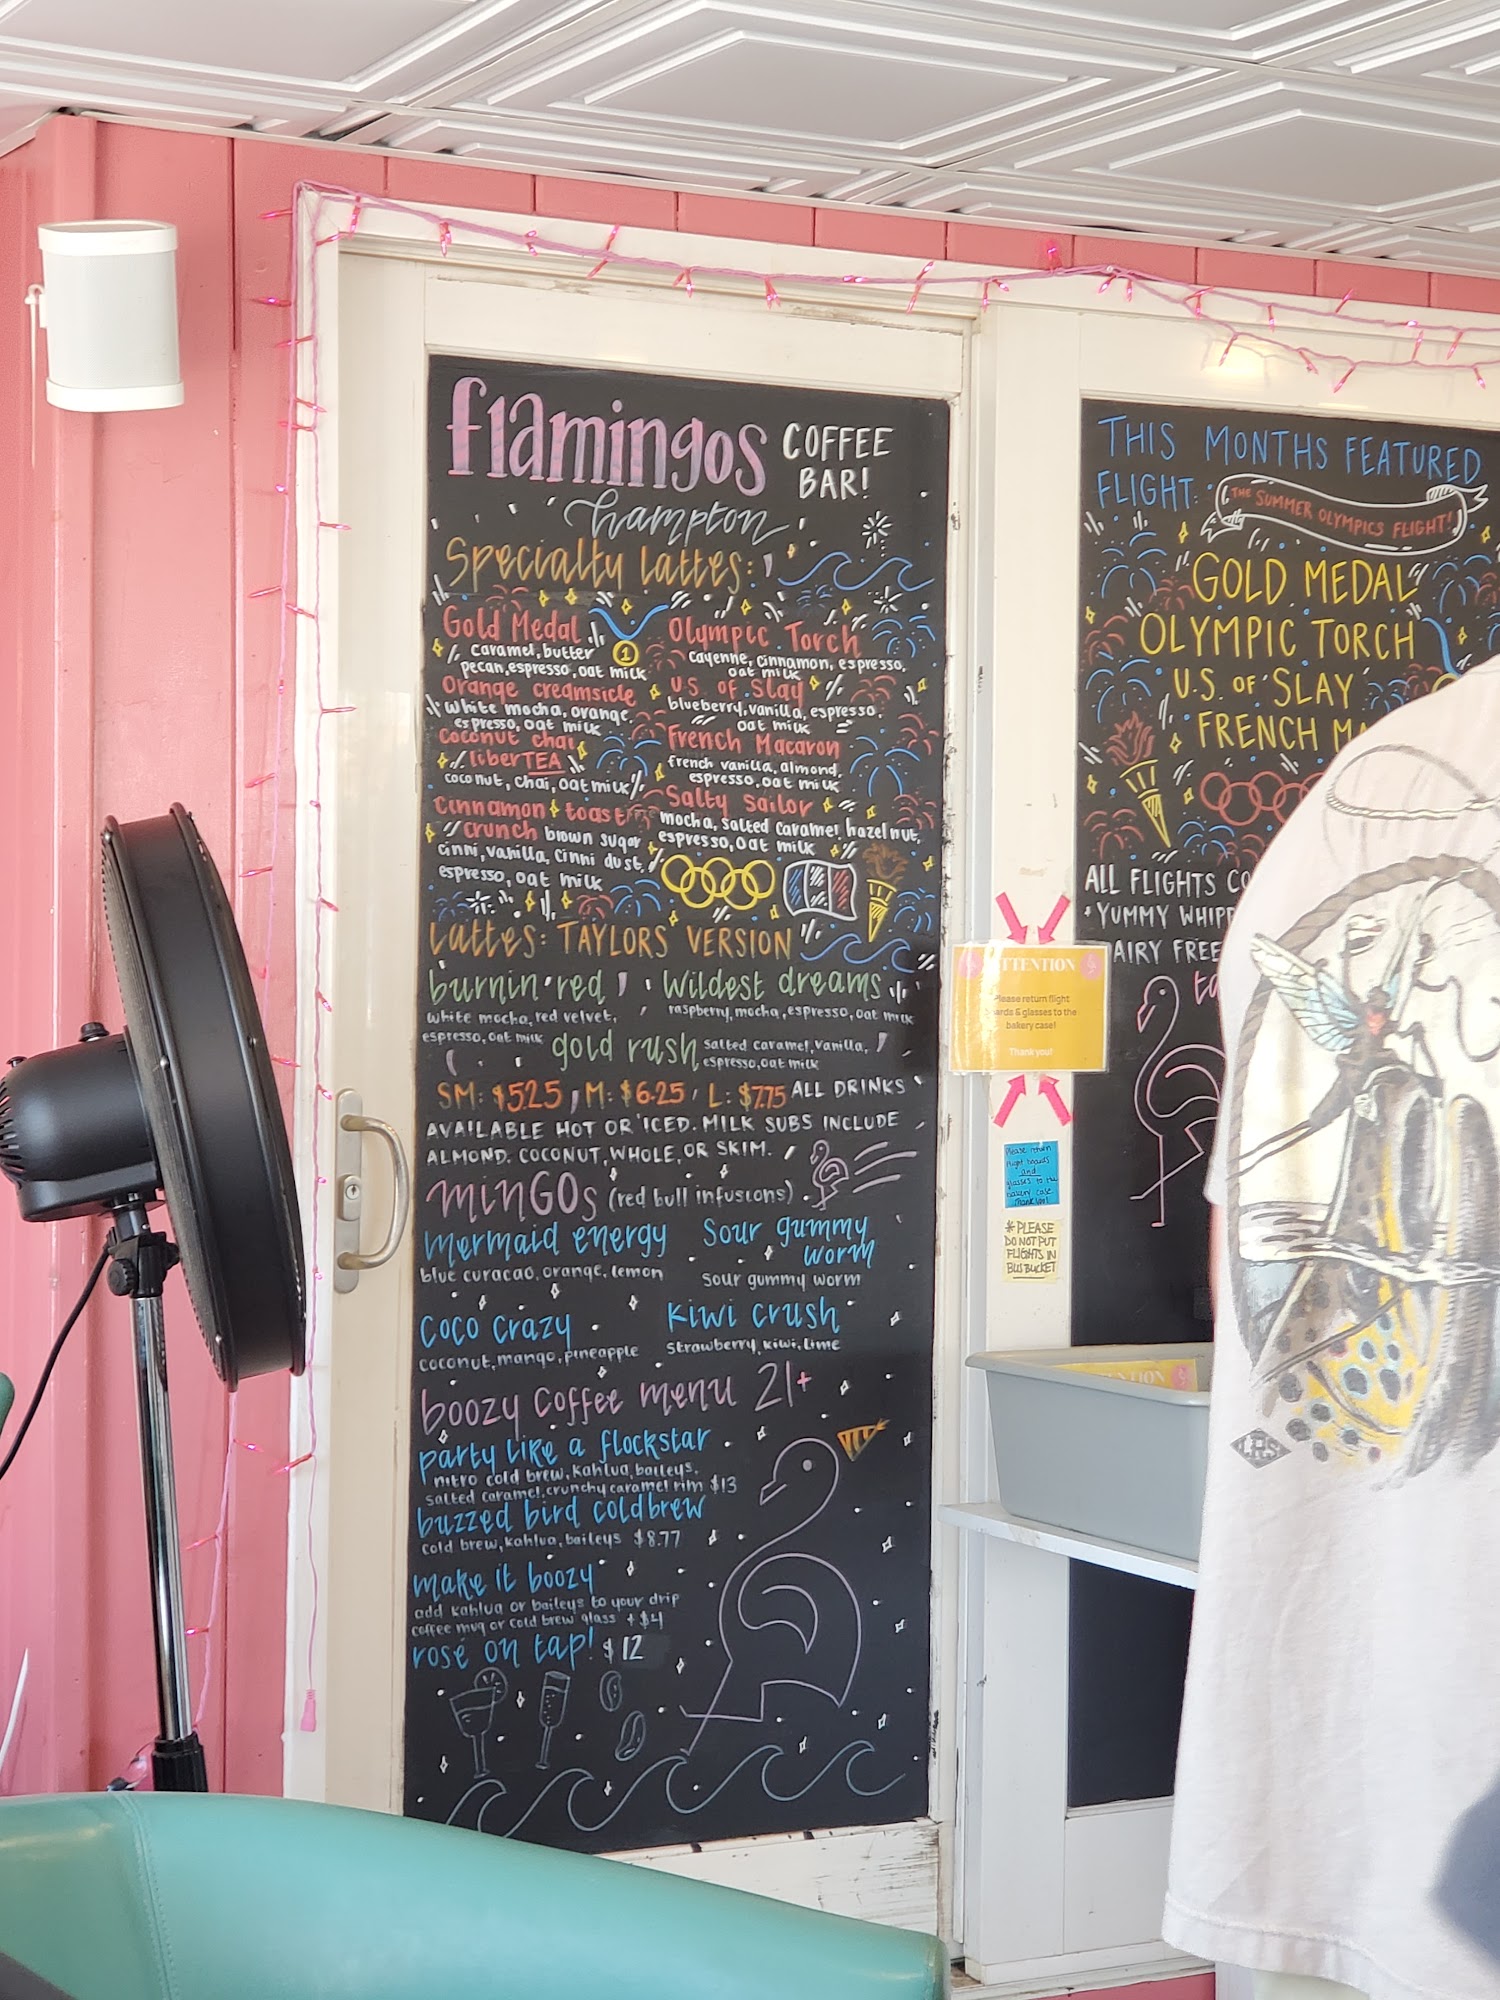 flamingos COFFEE BAR!
hampton
Specialty Lattes:
Gold Medal
1
caramel, butter
pecan, espresso, oat milk
Orange creamsicle
white mocha, orange,
espresso, oat milk
coconut chai
liberTEA
coconut, chai, oat milk
cinnamon toast
crunch brown sugar
cinni, vanilla, cinni dust,
espresso, oat milk
Olympic Torch
cayenne, cinnamon, espresso,
oat milk
U.S. of Slay
blueberry, vanilla, espresso,
oat milk
French Macaron
french vanilla, almond,
espresso, oat milk
Salty Sailor
mocha, salted caramel, hazelnut,
espresso, oat milk
Lattes: TAYLORS VERSION
burnin' red
white mocha, red velvet,
espresso, oat milk
Wildest dreams
raspberry, mocha, espresso, oat milk
gold rush salted caramel, vanilla,
espresso, oat milk
SM: $5.25, M: $6.25, L: $7.75 ALL DRINKS
AVAILABLE HOT OR ICED. MILK SUBS INCLUDE
ALMOND, COCONUT, WHOLE, OR SKIM.
minGOs (red bull infusions)
mermaid energy
blue curacao, orange, lemon
Sour gummy
worm
sour gummy worm
coco crazy
coconut, mango, pineapple
kiwi crush
strawberry, kiwi, lime
boozy coffee menu 21+
party like a flockstar
nitro cold brew, kahlua, baileys,
salted caramel, crunchy caramel rim $13
buzzed bird coldbrew
cold brew, kahlua, baileys $8.77
make it boozy
add kahlua or baileys to your drip
coffee mug or cold brew glass + $4
rosé on tap! $12
THIS MONTHS FEATURED
FLIGHT:
THE SUMMER OLYMPICS FLIGHT!
GOLD MEDAL
OLYMPIC TORCH
U.S. OF SLAY
FRENCH MA
ALL FLIGHTS CO
+ YUMMY WHIPP
AIRY FREE
ATTENTION
Please return flight
boards & glasses to the
bakery case!
Thank you!
Please return
flight boards
and
glasses to the
bakery case
Thank you!
*PLEASE
DO NOT PUT
FLIGHTS IN
BUS BUCKET
ATTENTION
LRS